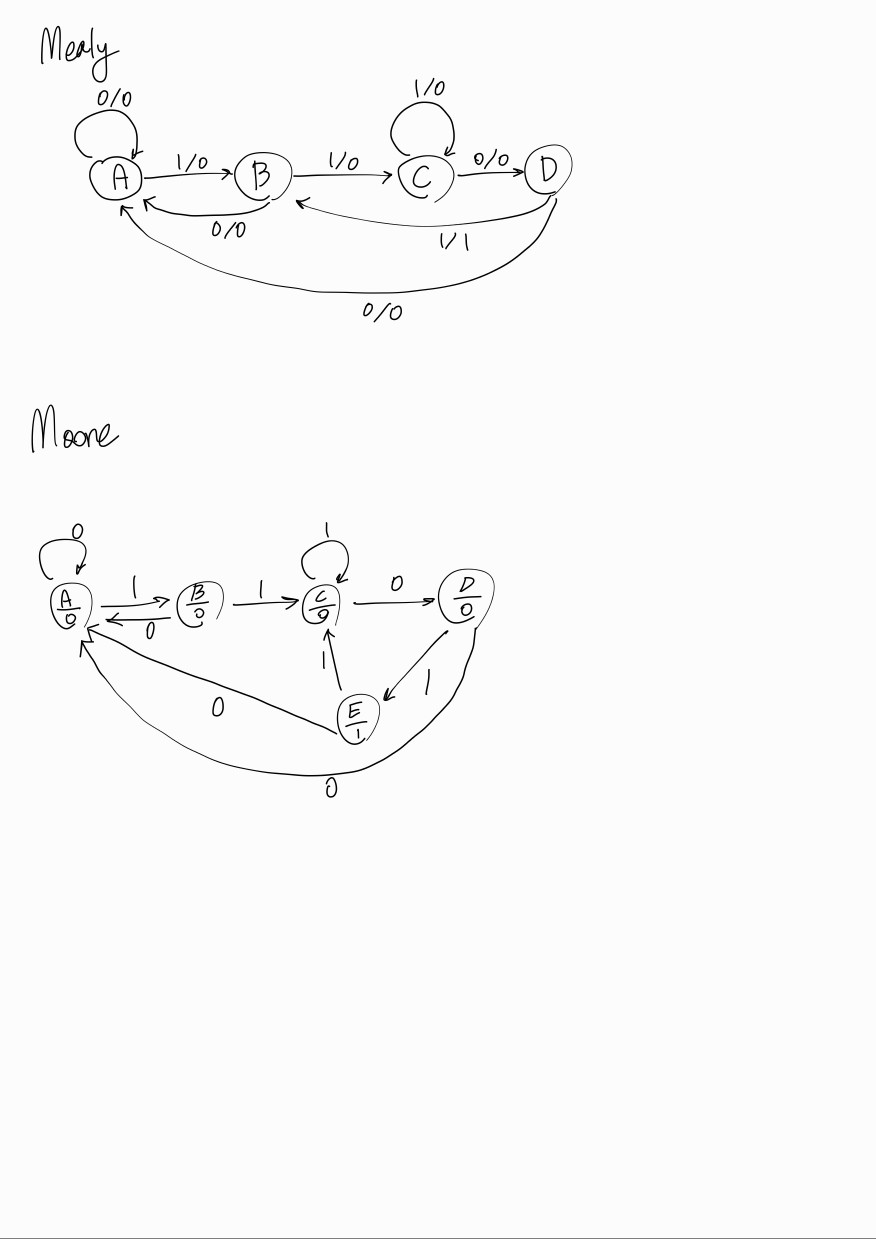 Mealy
0/0
1/0
A
1/0
B
1/0
C
0/0
D
0/0
1/1
0/0
Moore
0
1
A/0
1
B/0
1
C/0
0
D/0
0
1
1
0
E/1
0